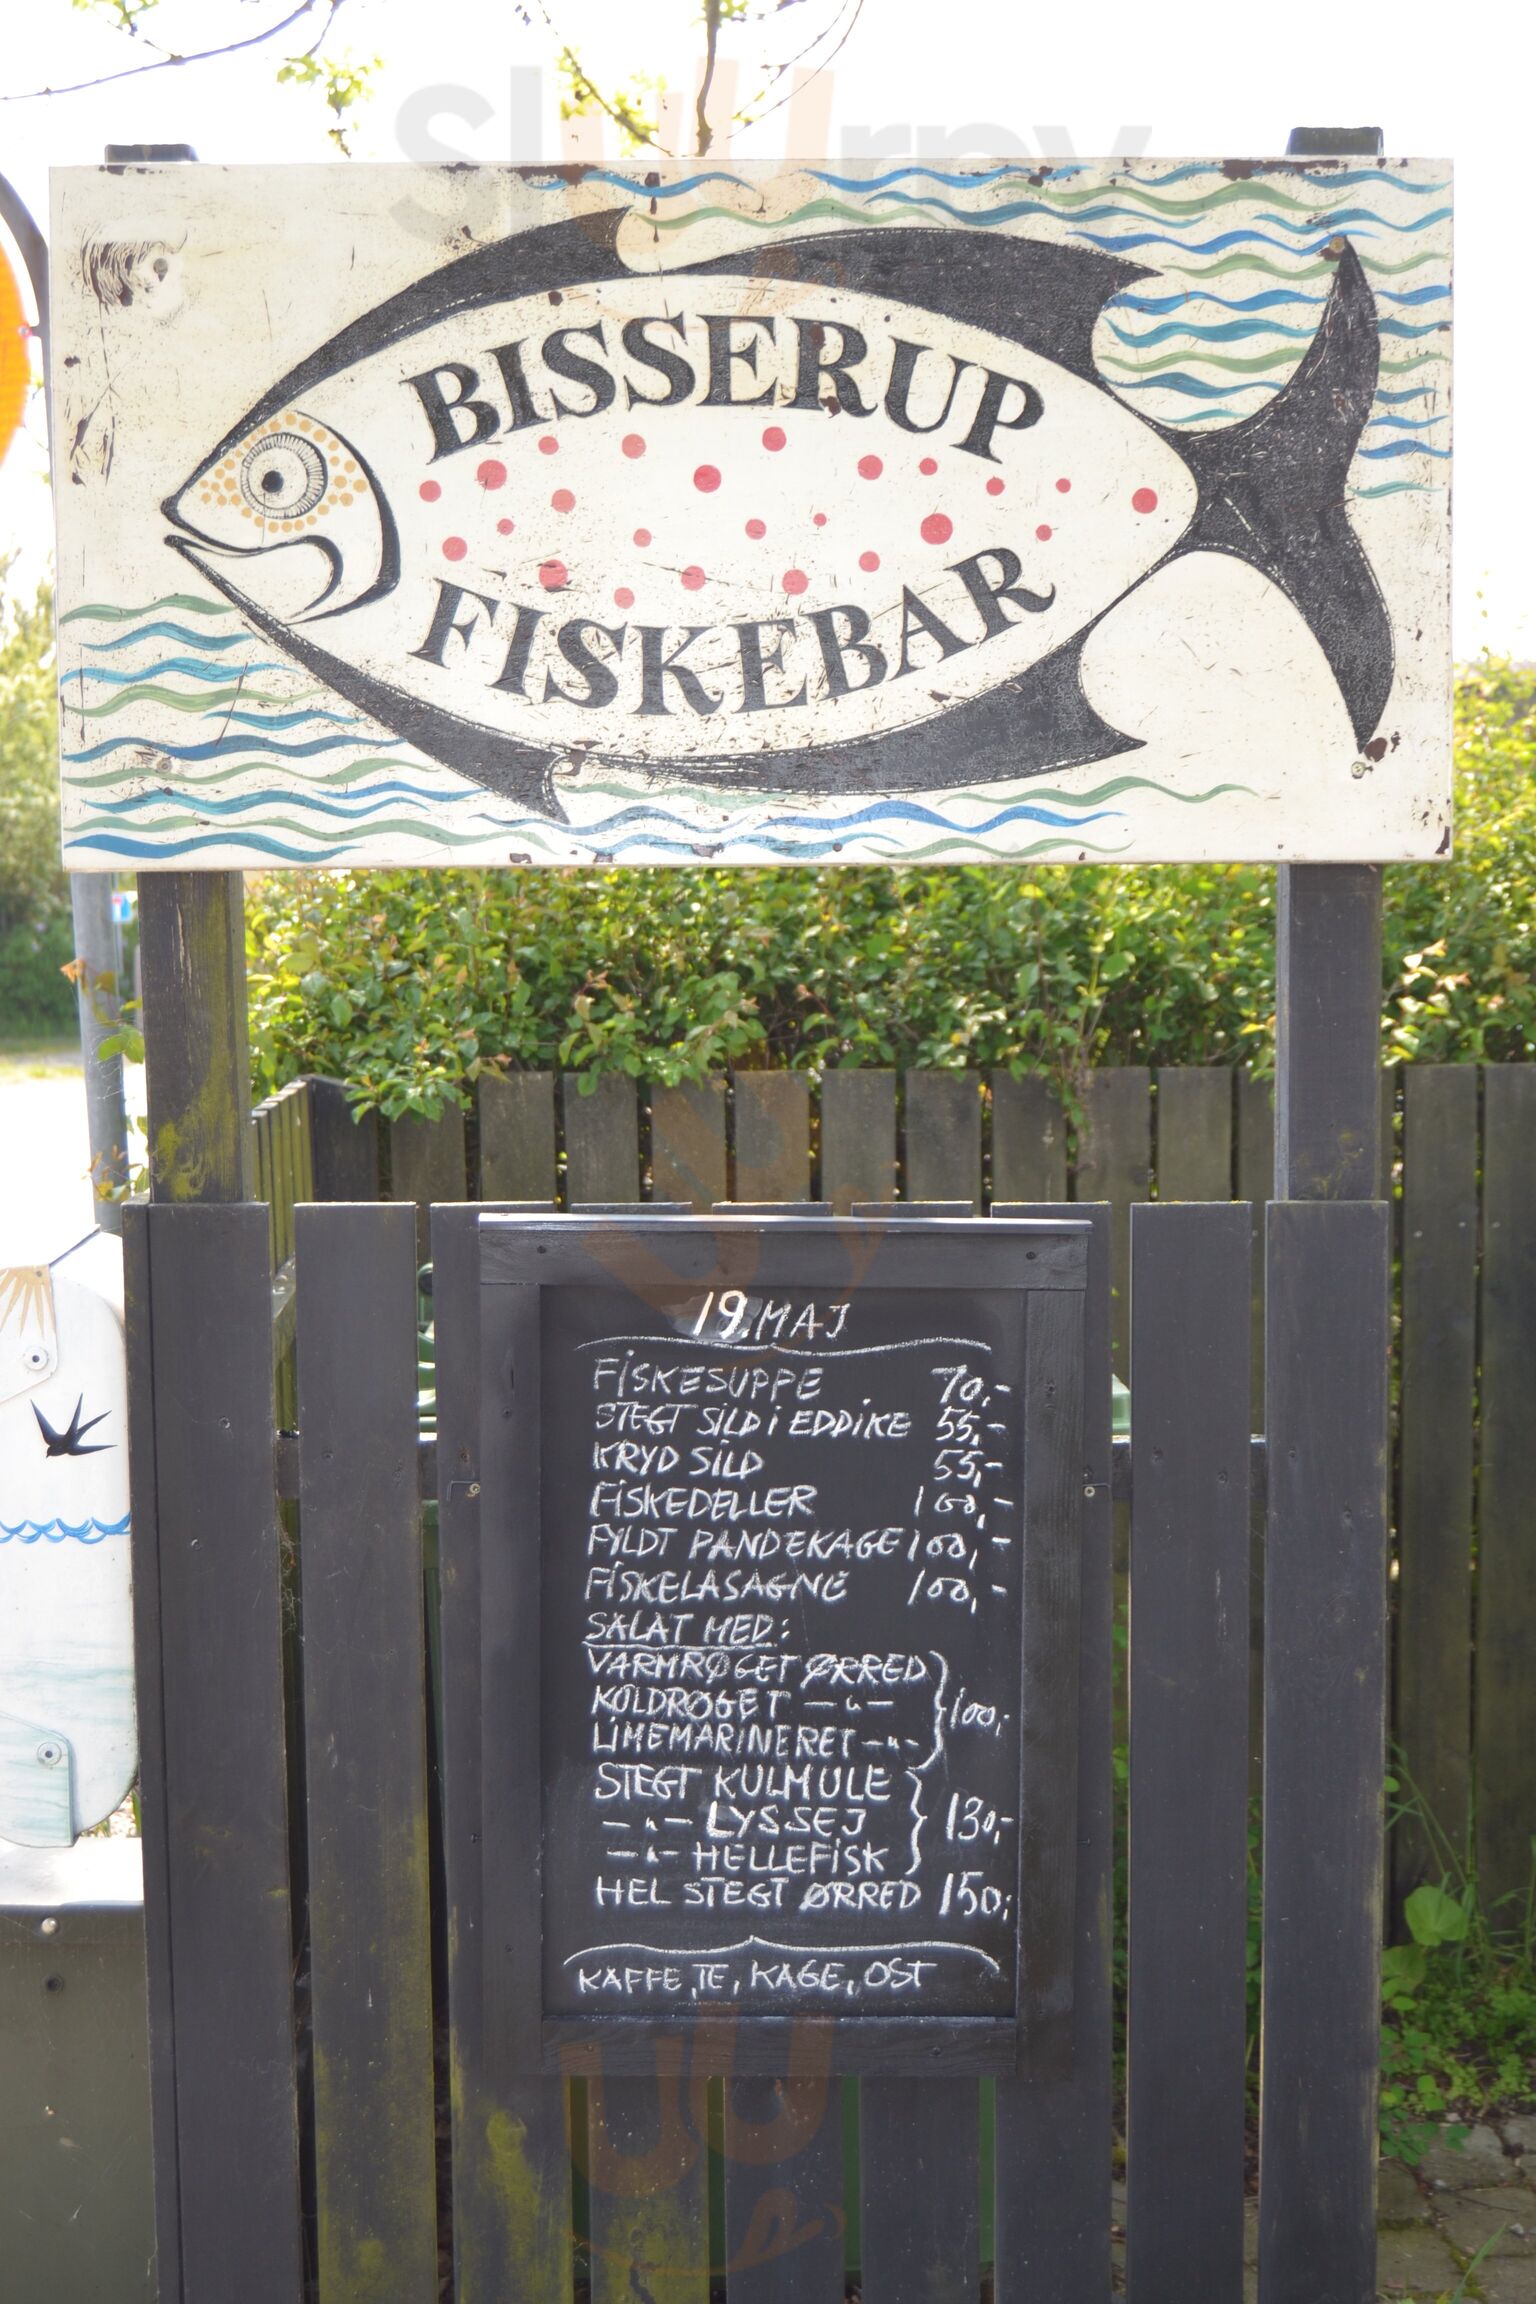 slurpy
BISSERUP
FISKEBAR
19. MAJ
FISKESUPPE 70,-
STEGT SILD i EDDIKE 55,-
KRYD SILD 55,-
FISKEDELLER 100,-
FYLDT PANDEKAGE 100,-
FISKELASAGNE 100,-
SALAT MED:
VARMRØGET ØRRED
KOLDRØGET —"— 100,-
LIMEMARINERET —"—
STEGT KULMULE
—"— LYSSEJ 130,-
—"— HELLEFISK
HEL STEGT ØRRED 150,-
KAFFE, TE, KAGE, OST